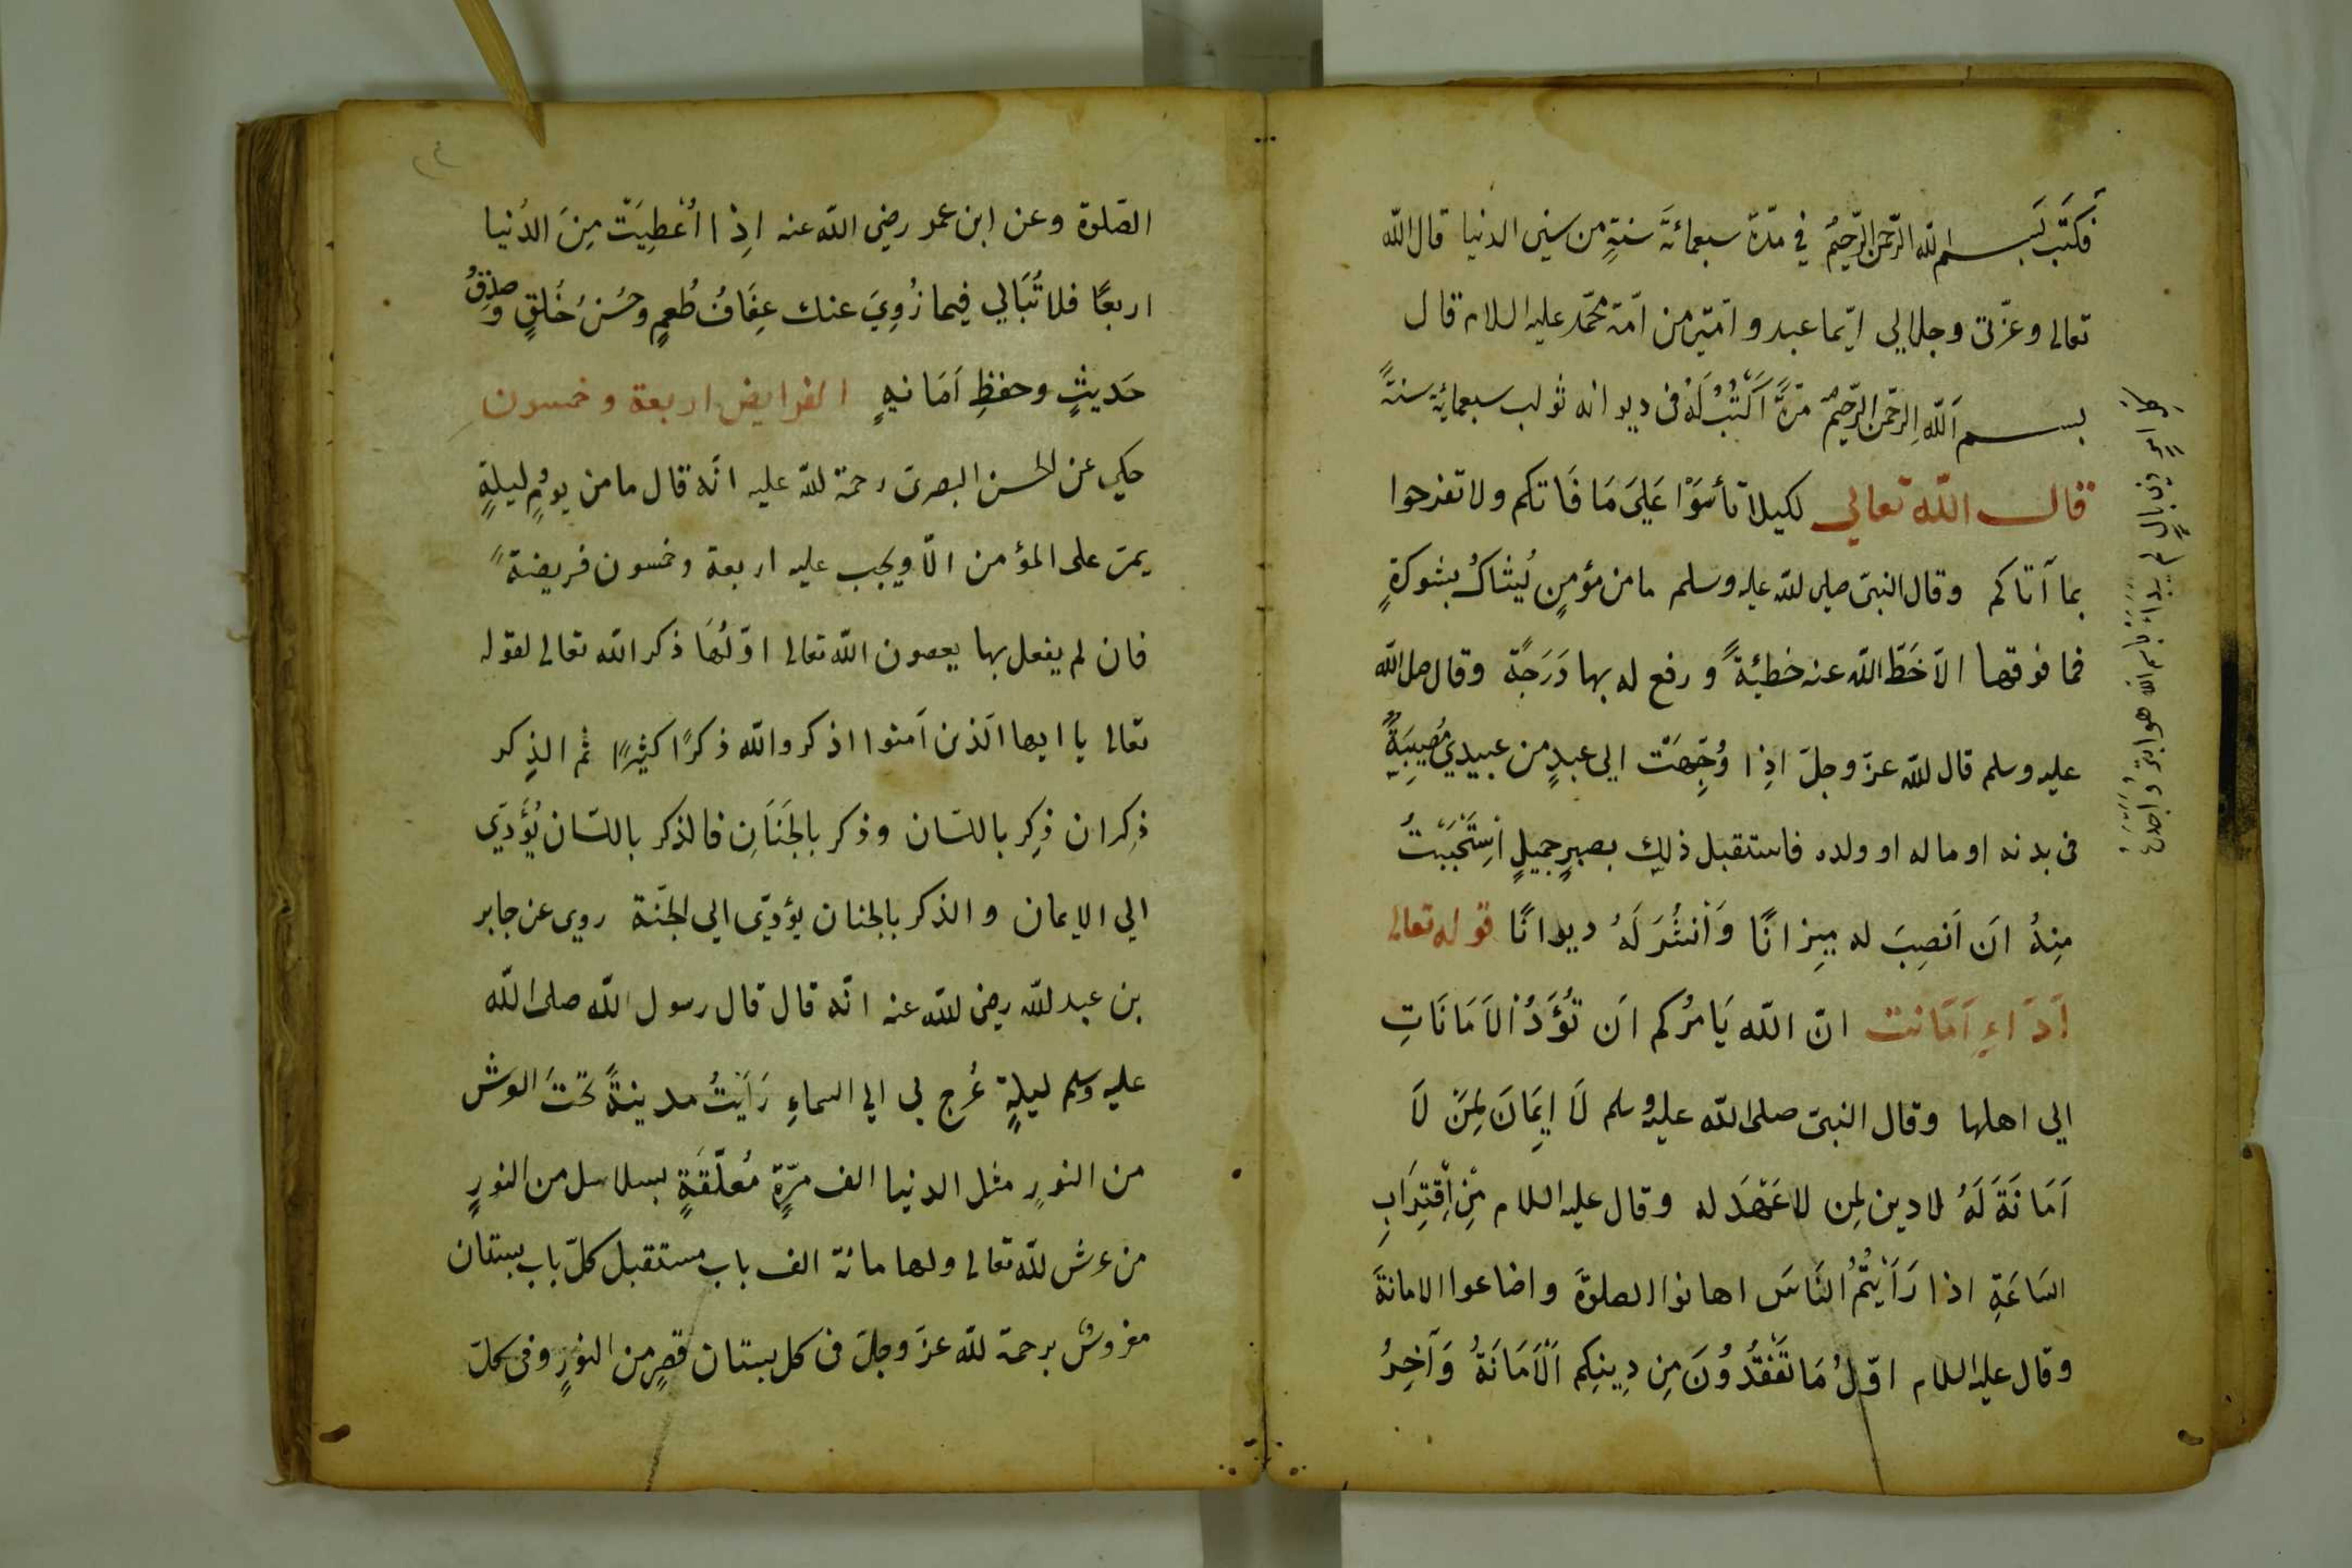 فَكَتَبَ بسم الله الرّحمن الرّحيم في مدّة سبعمائةَ سنةٍ من سني الدنيا قال الله
تعالى وعزّتى وجلالي ايّما عبد وامتيّ من امّة محمّد عليه السلام قال
بسم اللهِ الرّحمن الرّحيم مرّةً اَكْتُبُ لَهُ فى ديوانه ثواب سبعمائة سنةً
قال الله تعالي لكيلا تأسَوْا عَلَيَ مَا فَاتكم ولا تفرحوا
بما آتاكم وقال النبىّ صلى الله عليه وسلم ما من مؤمنٍ يُشاكُ بشوكةٍ
فما فوقها الاّ حَطّ الله عنه خطيئةً و رفع له بها دَرَجةً وقال صلى الله
عليه وسلم قال الله عزّ وجلّ اذِا وُجِّهَتْ الي عبدٍ من عبيدي مُصِيبَةً
فى بدنه او ماله او ولده فاستقبل ذلِك بصبرٍ جميلٍ اسْتَحْيَيْتُ
مِنهُ اَن اَنصِبَ له مِيزانًا وَاَنْشُرَ لَهُ ديوانًا قوله تعالى
اَدَاءِ اَمَانت انّ الله يَامرُكم اَن تُؤَدُّ الاَمَانَاتِ
الي اهلها وقال النبىّ صلى الله عليه وسلم لَا اِيمَانَ لِمَنْ لَا
اَمَانَةَ لَهُ لا دين لمن لا عَهْدَ له وقال عليه السلام مِنْ اِقْتِرَابِ
السَاعَةِ اذا رَاَيْتُمُ النَاسَ اهانوا الصلوةَ واضاعوا الامانةَ
وقال عليه السلام اوّلُ مَا تَفْقُدُونَ مِن دِينِكم اَلْاَمَانَةُ وَآخِرُ
كل امرٍ ذي بالٍ لم يبدأ باسم الله فهو ابتر
الصّلوة وعن ابن عمر رضي الله عنه اذِا اُعْطِيَتْ مِنَ الدُنيا
اربعًا فلا تُبَالي فيما زُوِيَ عنك عِفَافُ طُعمٍ وحُسْنُ خَلقٍ وصِدْقُ
حَديثٍ وحفظِ اَمَانةٍ الفرايض اربعة وخمسون
حكي عن الحسن البصرى رحمة الله عليه انّه قال ما من يومٍ ليلةٍ
يمرّ على المؤمن الّا ويجب عليه اربعة وخمسون فريضةً
فان لم يفعل بها يعصون الله تعالى اوّلُهَا ذكر الله تعالى لقوله
تعالى يا ايها الّذين اَمنوا اذكروا الله ذكرًا كثيرًا ثم الذِكر
ذِكران ذِكر باللسان وذكر بالجَنَانِ فالذكر باللسان يُؤَدّي
الي الايمان والذكر بالجنان يؤدّي الي الجنّة روى عن جابر
بن عبد الله رضى الله عنه انّه قال قال رسول الله صلى الله
عليه وسلم ليلةٍ عُرج بى الي السماءِ رَاَيْتُ مدينةً تَحْتَ العرش
من النورِ مثل الدنيا الف مرّةٍ مُعلّقةٍ بسلاسل من النورِ
من عرش الله تعالى ولها مائة الف باب مستقبل كلّ باب بستان
مفروشٌ برحمة الله عزّ وجلّ فى كل بستان قصرٍ من النورٍ وفى كلّ